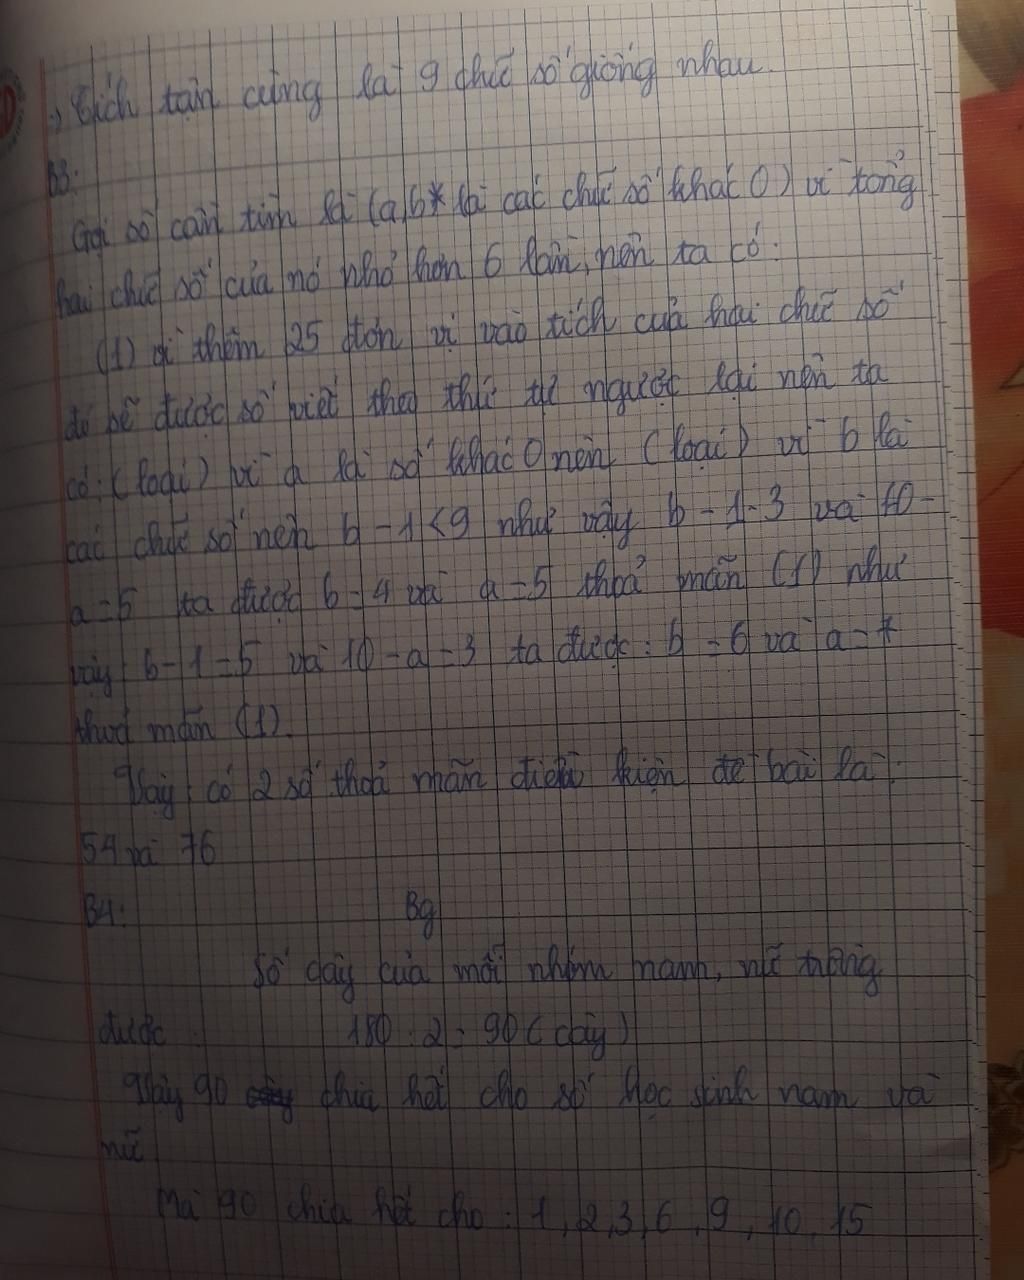 -) Tích tận cùng là 9 chữ số giống nhau.
B3:
Gọi số cần tìm là (a,b* là các chữ số khác 0) vì tổng
hai chữ số của nó nhỏ hơn 6 lần, nên ta có:
(1) vì thêm 25 đơn vị vào tích của hai chữ số
đó sẽ được số viết theo thứ tự ngược lại nên ta
có: (loại) vì a là số khác 0 nên (loại) vì b là
các chữ số nên b - 1 < 9 như vậy b - 1 = 3 và 10 -
a = 5 ta được b = 4 và a = 5 thoả mãn (1) như
vậy b - 1 = 5 và 10 - a = 3 ta được: b = 6 và a = 7
thoả mãn (1).
Vậy có 2 số thoả mãn điều kiện đề bài là:
54 và 76
B4:
Bg
Số cây của mỗi nhóm nam, nữ trồng
được 180 : 2 = 90 (cây)
Vậy 90 chia hết cho số học sinh nam và
nữ
Mà 90 chia hết cho: 1, 2, 3, 6, 9, 10, 15